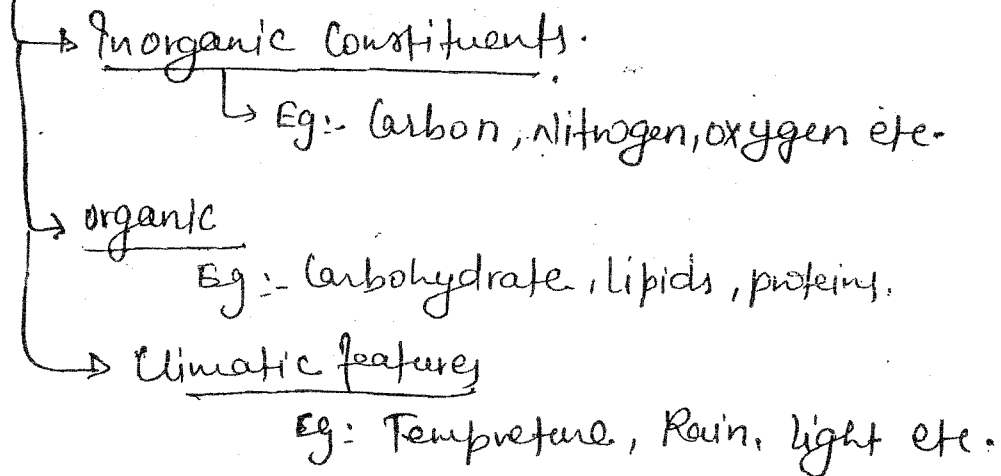 Inorganic Constituents.
Eg:- Carbon, Nitrogen, oxygen etc.
organic
Eg:- Carbohydrate, lipids, proteins.
Climatic features
Eg: Tempreture, Rain, light etc.